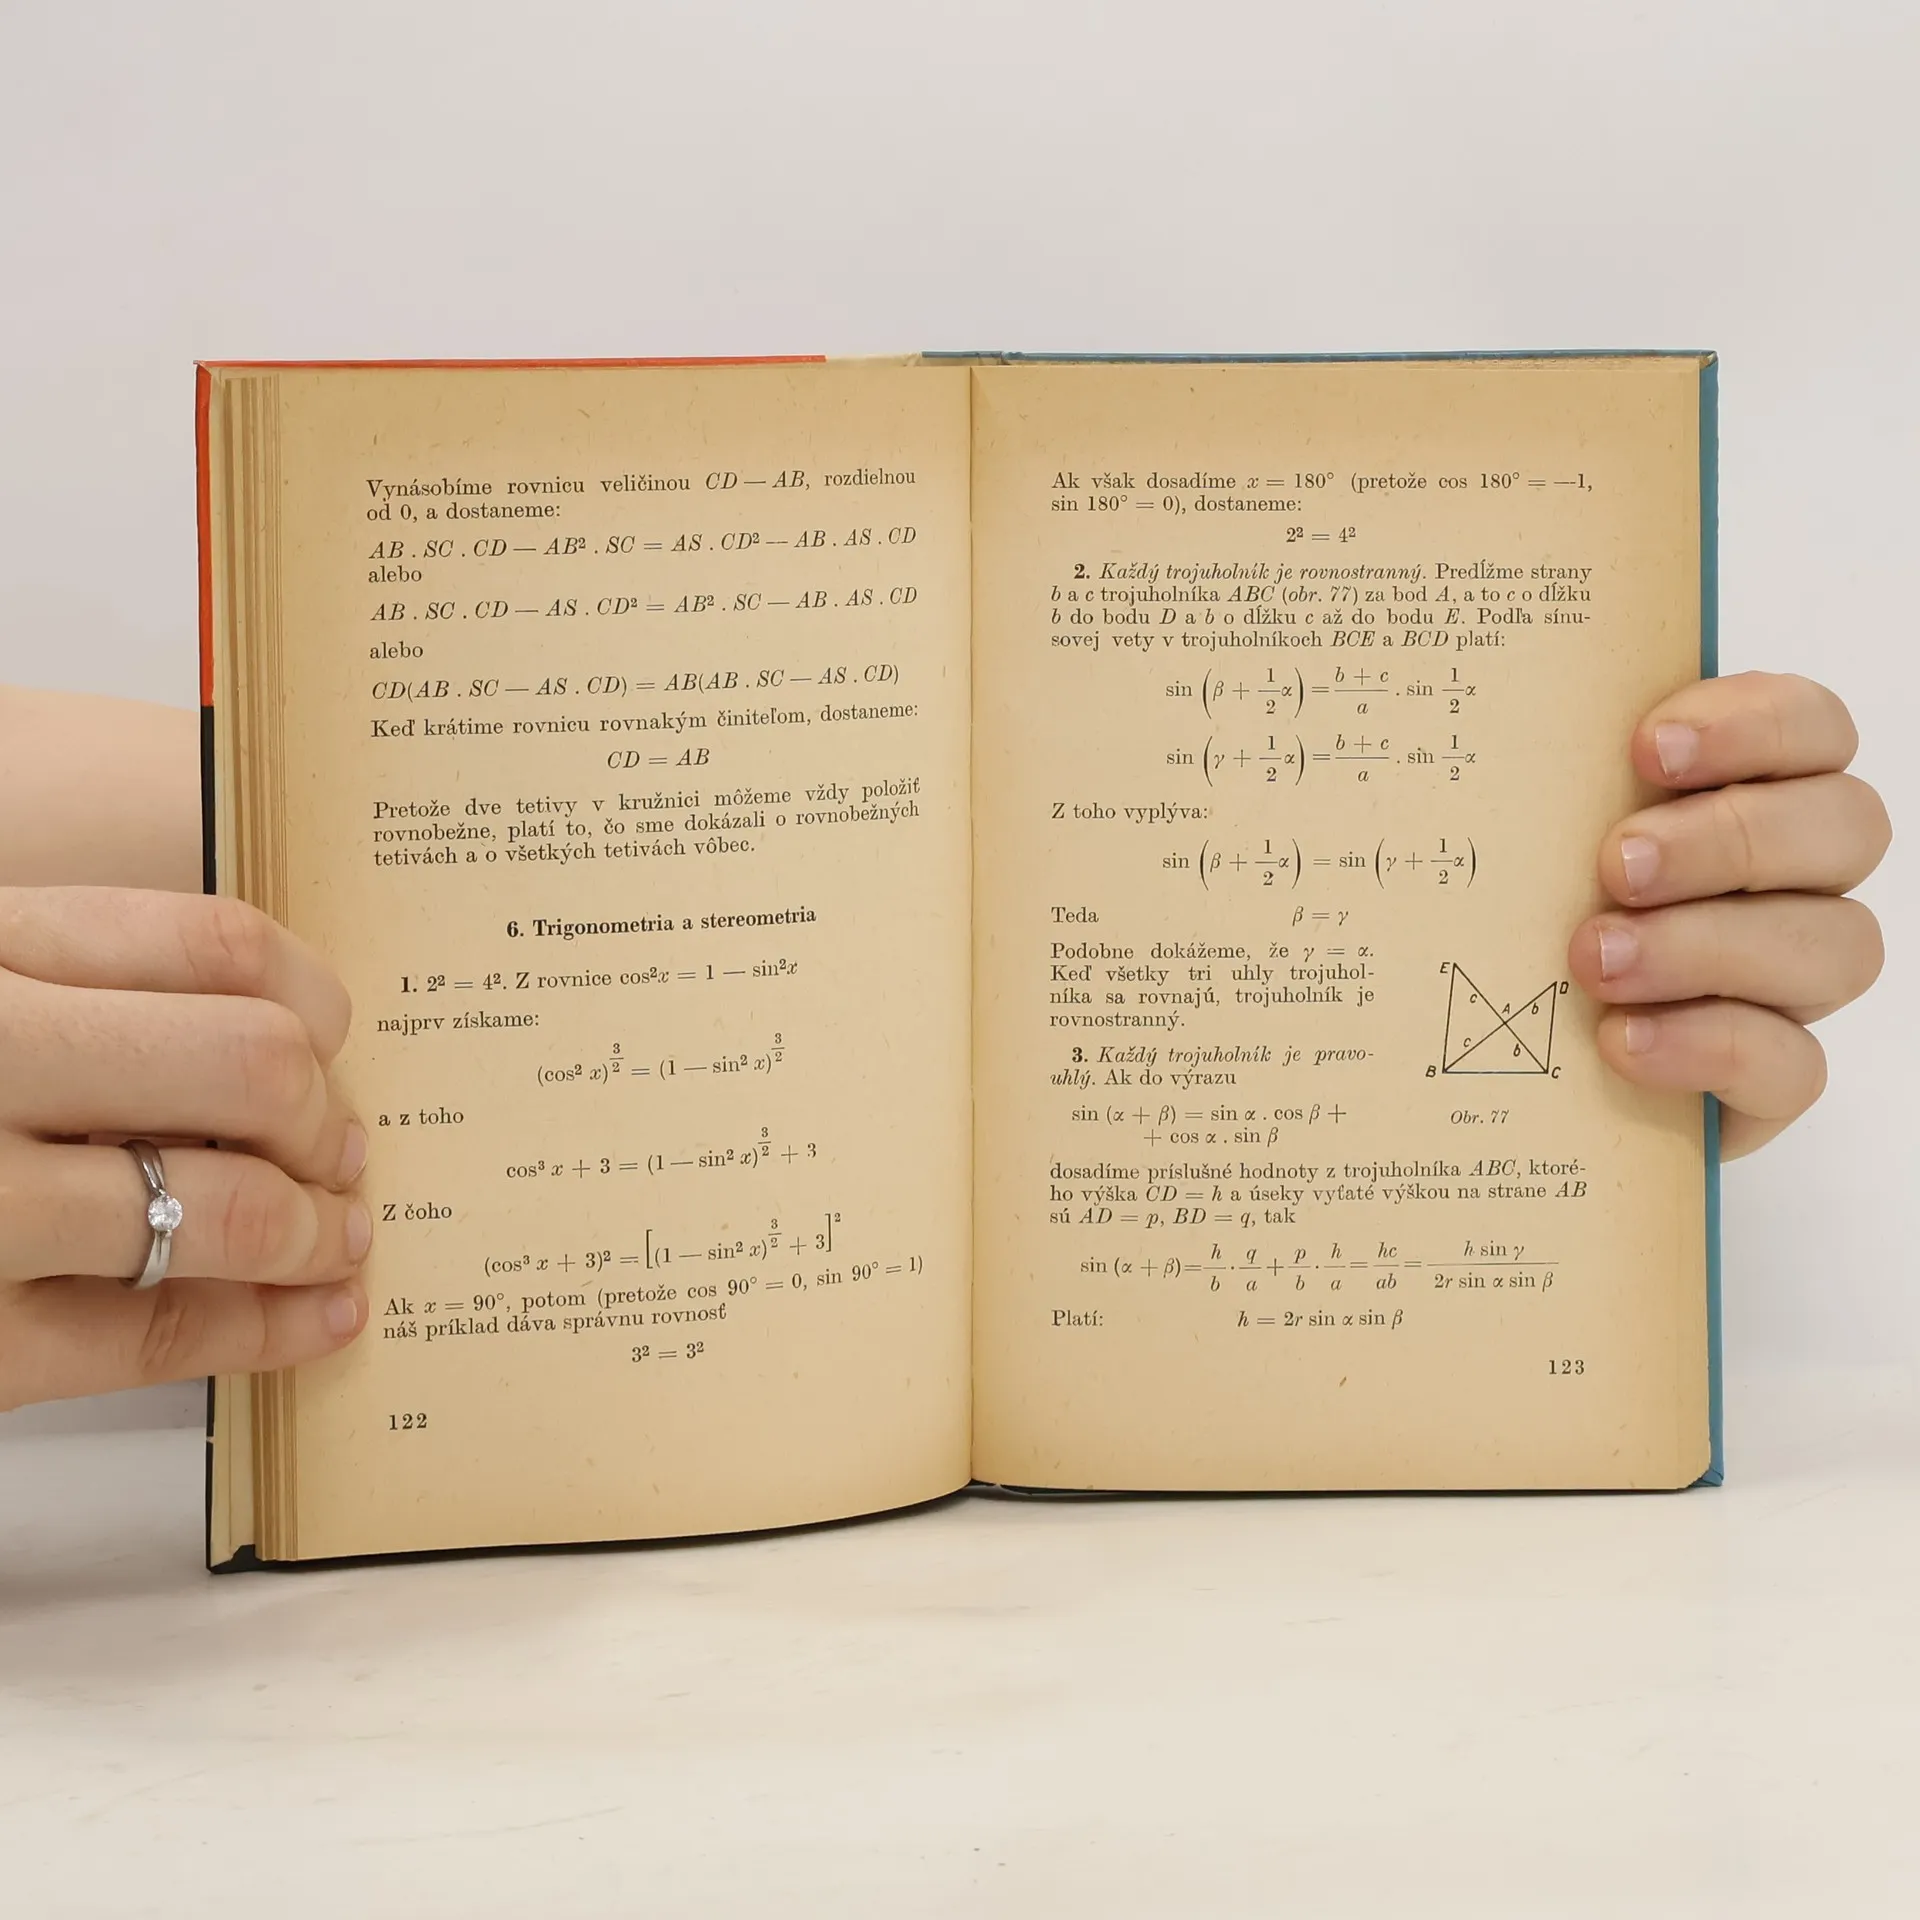 Vynásobíme rovnicu veličinou CD — AB, rozdielnou
od 0, a dostaneme:
AB . SC . CD — AB² . SC = AS . CD² — AB . AS . CD
alebo
AB . SC . CD — AS . CD² = AB² . SC — AB . AS . CD
alebo
CD(AB . SC — AS . CD) = AB(AB . SC — AS . CD)
Keď krátime rovnicu rovnakým činiteľom, dostaneme:
CD = AB
Pretože dve tetivy v kružnici môžeme vždy položiť
rovnobežne, platí to, čo sme dokázali o rovnobežných
tetivách a o všetkých tetivách vôbec.
6. Trigonometria a stereometria
1. 2² = 4². Z rovnice cos²x = 1 — sin²x
najprv získame:
(cos² x)^(3/2) = (1 — sin² x)^(3/2)
a z toho
cos³ x + 3 = (1 — sin² x)^(3/2) + 3
Z čoho
(cos³ x + 3)² = [(1 — sin² x)^(3/2) + 3]²
Ak x = 90°, potom (pretože cos 90° = 0, sin 90° = 1)
náš príklad dáva správnu rovnosť
3² = 3²
122
Ak však dosadíme x = 180° (pretože cos 180° = —1,
sin 180° = 0), dostaneme:
2² = 4²
2. Každý trojuholník je rovnostranný. Predĺžme strany
b a c trojuholníka ABC (obr. 77) za bod A, a to c o dĺžku
b do bodu D a b o dĺžku c až do bodu E. Podľa sínu-
sovej vety v trojuholníkoch BCE a BCD platí:
sin (β + 1/2 α) = (b + c)/a . sin 1/2 α
sin (γ + 1/2 α) = (b + c)/a . sin 1/2 α
Z toho vyplýva:
sin (β + 1/2 α) = sin (γ + 1/2 α)
Teda β = γ
Podobne dokážeme, že γ = α.
Keď všetky tri uhly trojuhol-
níka sa rovnajú, trojuholník je
rovnostranný.
3. Každý trojuholník je pravo-
uhlý. Ak do výrazu
sin (α + β) = sin α . cos β +
+ cos α . sin β
E
D
c
A
b
c
b
B
C
Obr. 77
dosadíme príslušné hodnoty z trojuholníka ABC, ktoré-
ho výška CD = h a úseky vyťaté výškou na strane AB
sú AD = p, BD = q, tak
sin (α + β) = h/b . q/a + p/b . h/a = hc/ab = h sin γ / 2r sin α sin β
Platí: h = 2r sin α sin β
123